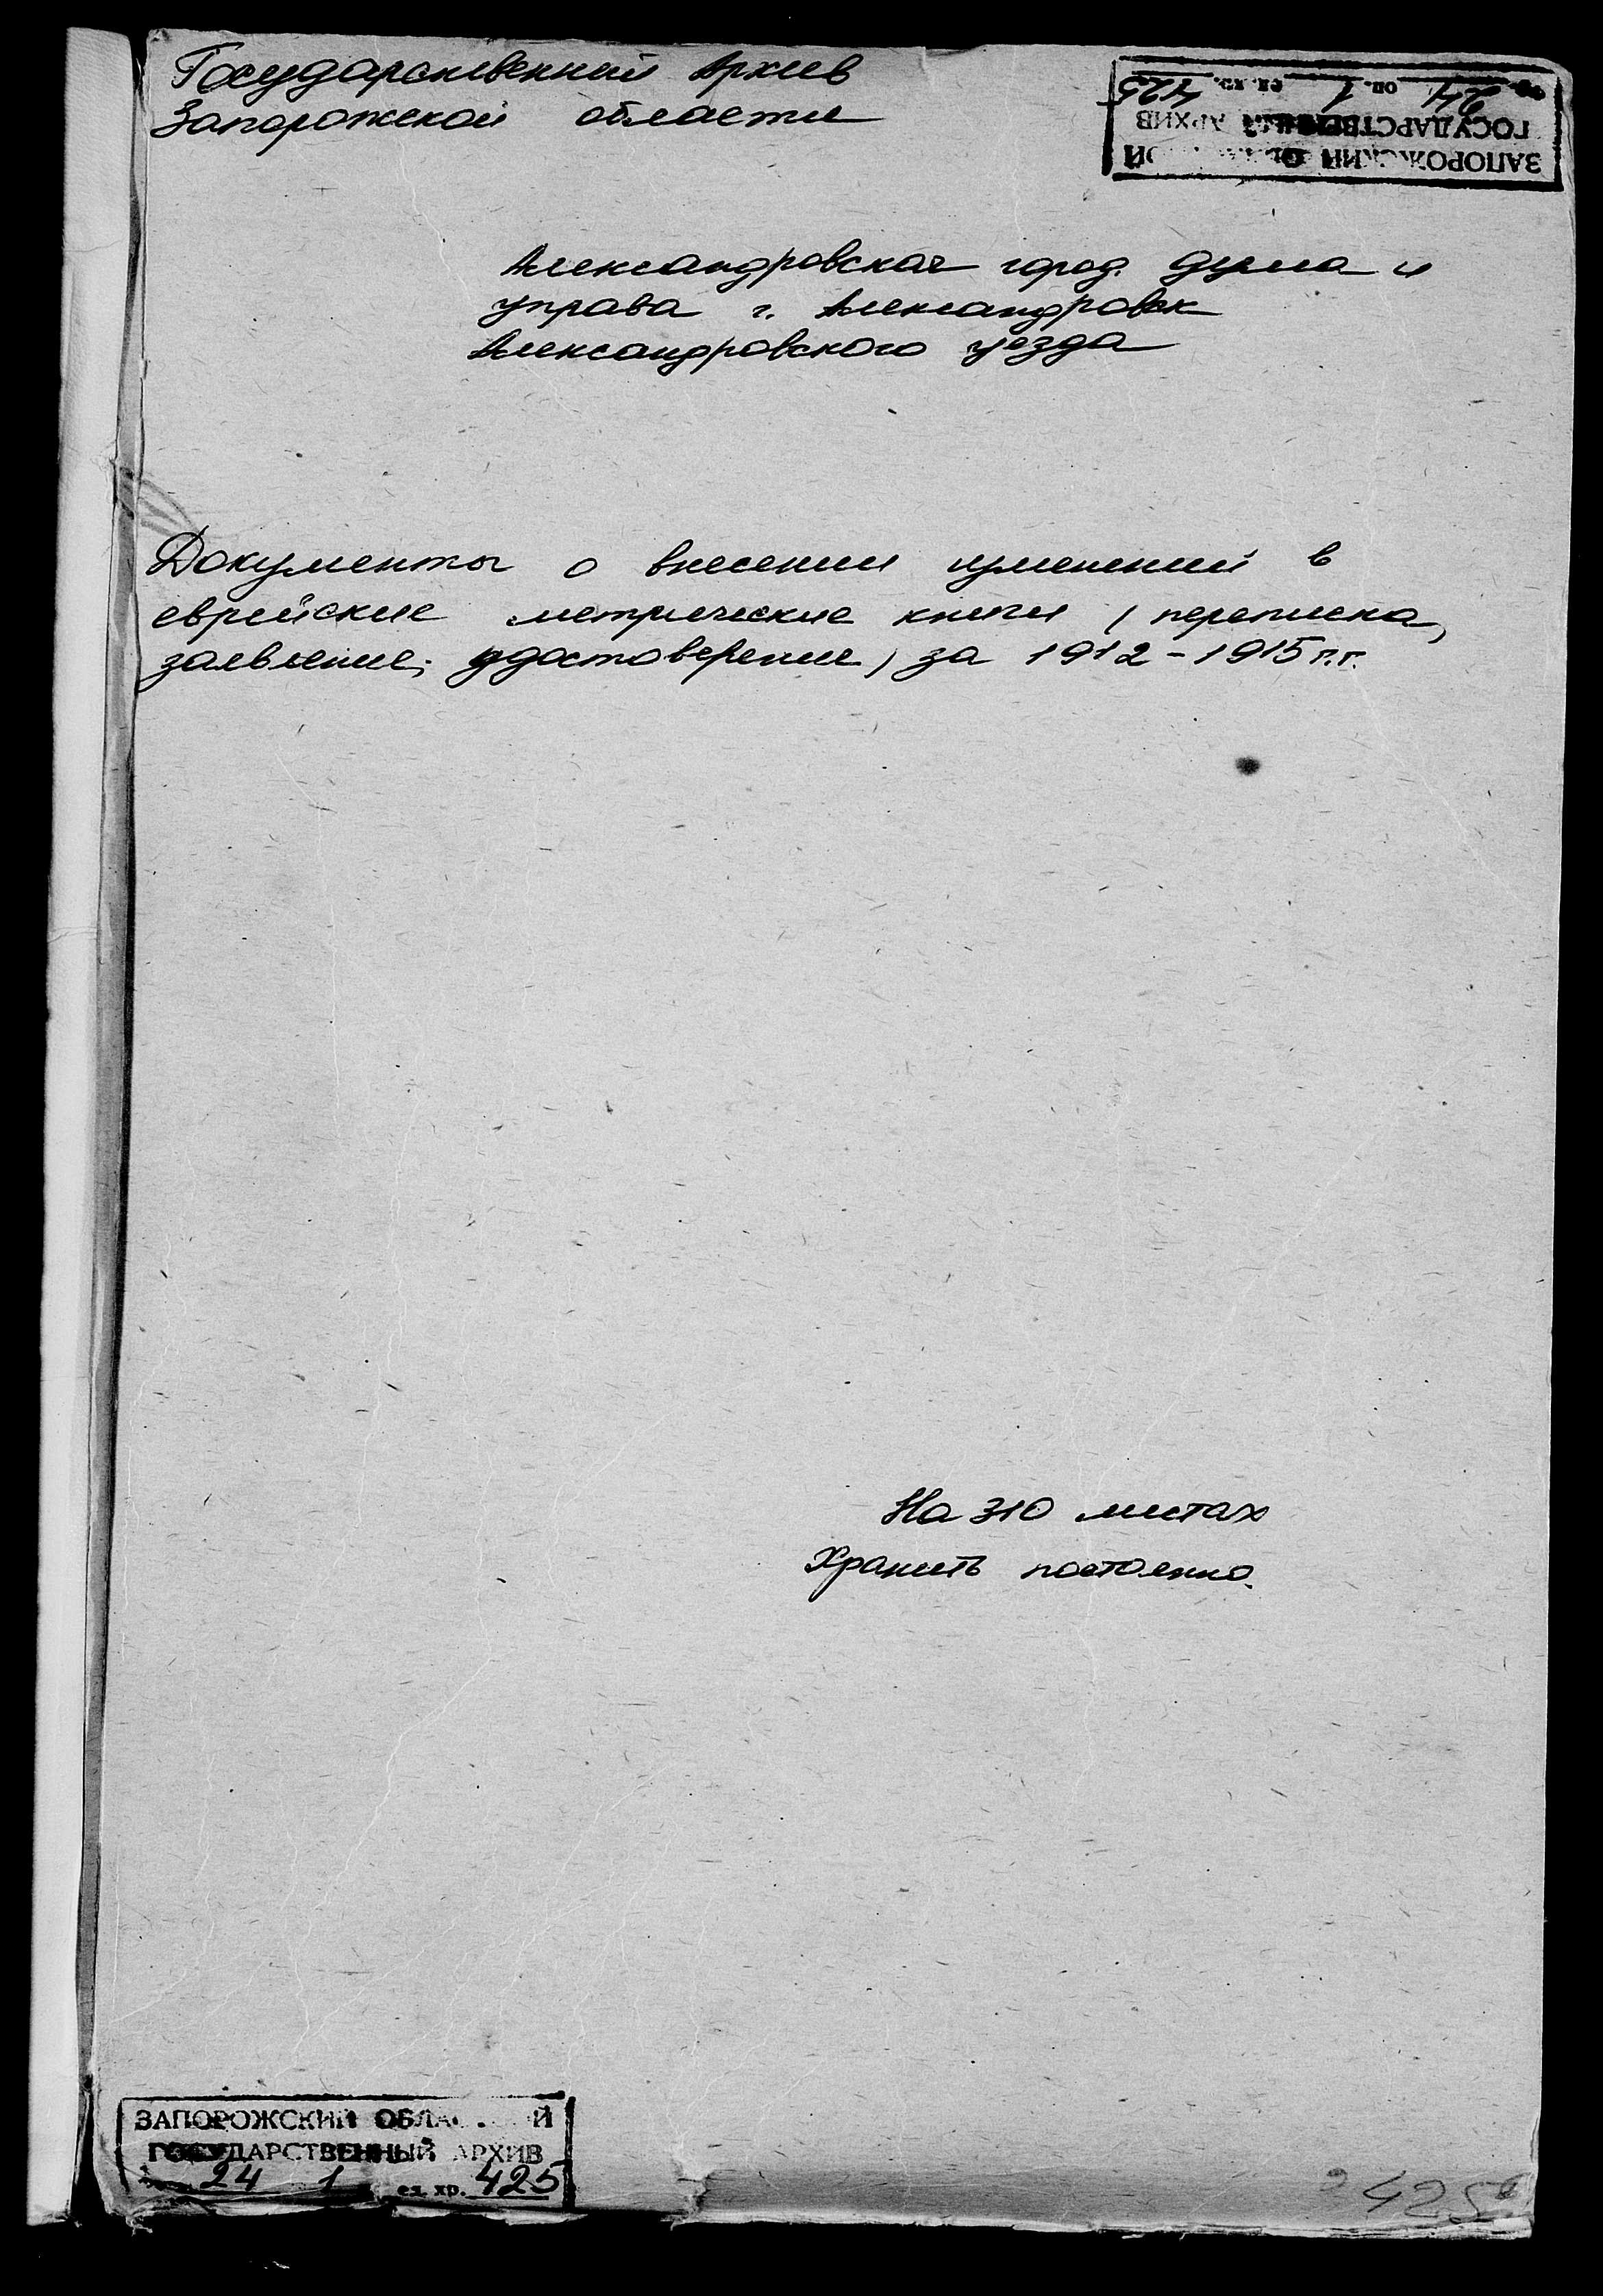 Государственный Архив
Запорожской области
ЗАПОРОЖСКИЙ
ГОСУДАРСТВЕННЫЙ АРХИВ
24 оп. 1 ед. хр. 425
Александровская город. дума и
управа г. Александровск
Александровского уезда
Документы о внесении изменений в
еврейские метрические книги (переписка,
заявление, удостоверение) за 1912-1915 г.г.
На 310 листах
Хранить постоянно.
ЗАПОРОЖСКИЙ
ГОСУДАРСТВЕННЫЙ АРХИВ
24 1 ед. хр. 425
425